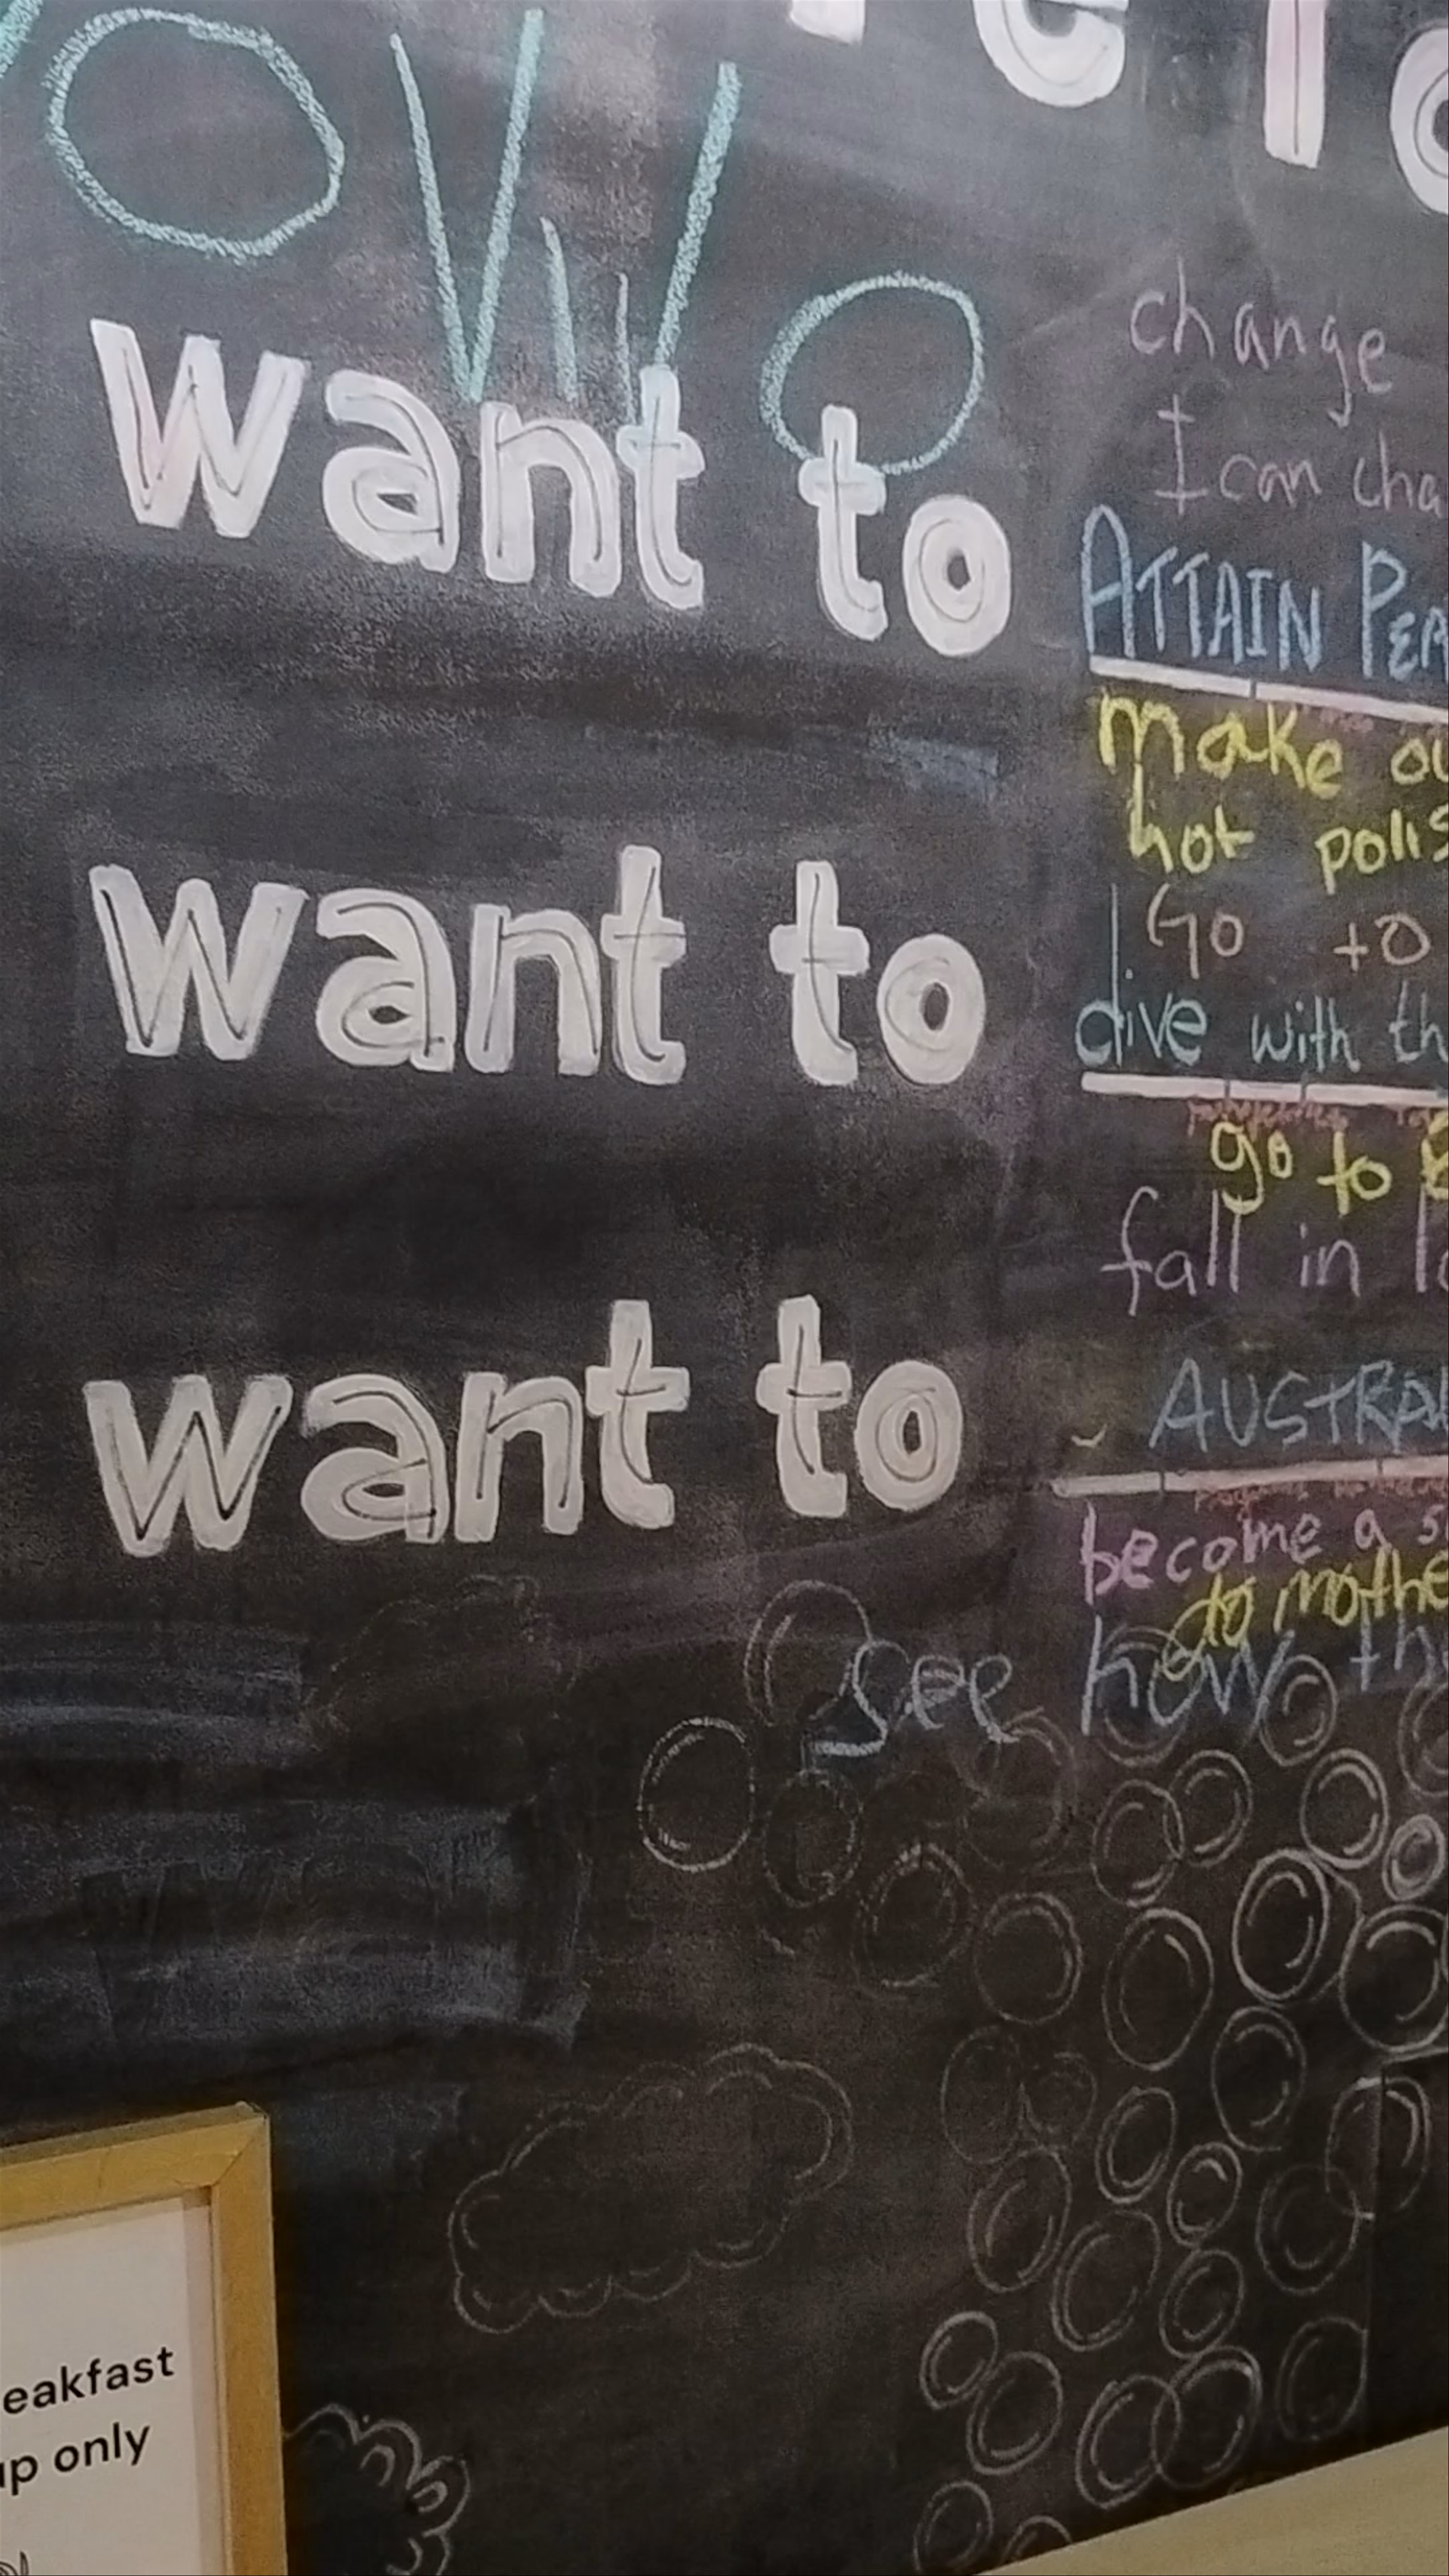 change
I can cha
want to
ATTAIN PEA
make ou
hot polis
Go to
want to
dive with th
go to
fall in lo
AUSTRAL
want to
become a s
do mothe
see how th
eakfast
up only